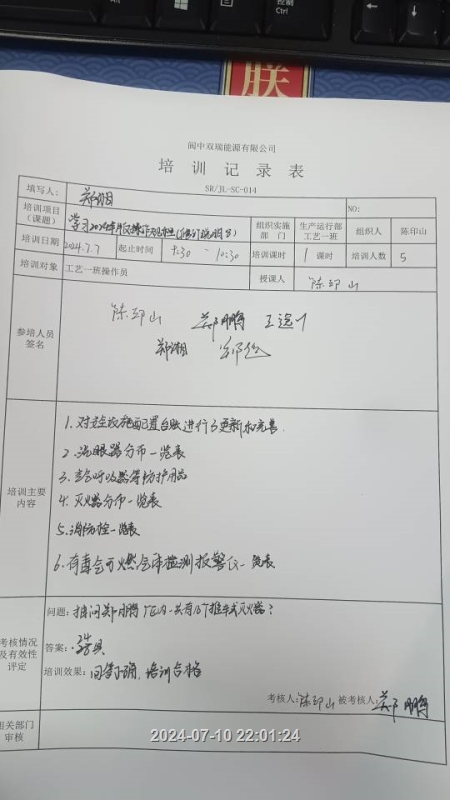 Alt
控制
Ctrl
朕
阆中双瑞能源有限公司
培训记录表
SR/JL-SC-014
填写人: 郑湘 NO:
培训项目(课题) 学习2024年版操作规程(修订说明8) 组织实施部门 生产运行部工艺一班 组织人 陈印山
培训日期 2024.7.7 起止时间 9:30 - 10:30 培训课时 1 课时 培训人数 5
培训对象 工艺一班操作员 授课人 陈印山
参培人员签名 陈印山 郑鹏
郑湘
培训主要内容
1. 对安全设施配置台账进行了更新和完善
2. 洗眼器分布一览表
3. 空气呼吸器等防护用品
4. 灭火器分布一览表
5. 消防栓一览表
6. 有毒气可燃气体检测报警仪一览表
考核情况及有效性评定
问题: 抽问郑鹏 一共有几个推车式灭火器?
答案:
培训效果: 回答正确, 培训合格
考核人: 陈印山 被考核人: 郑鹏
相关部门审核
2024-07-10 22:01:24